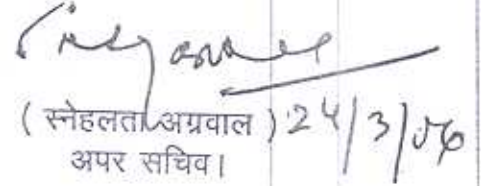 ( स्नेहलता अग्रवाल ) 24/3/06
अपर सचिव।